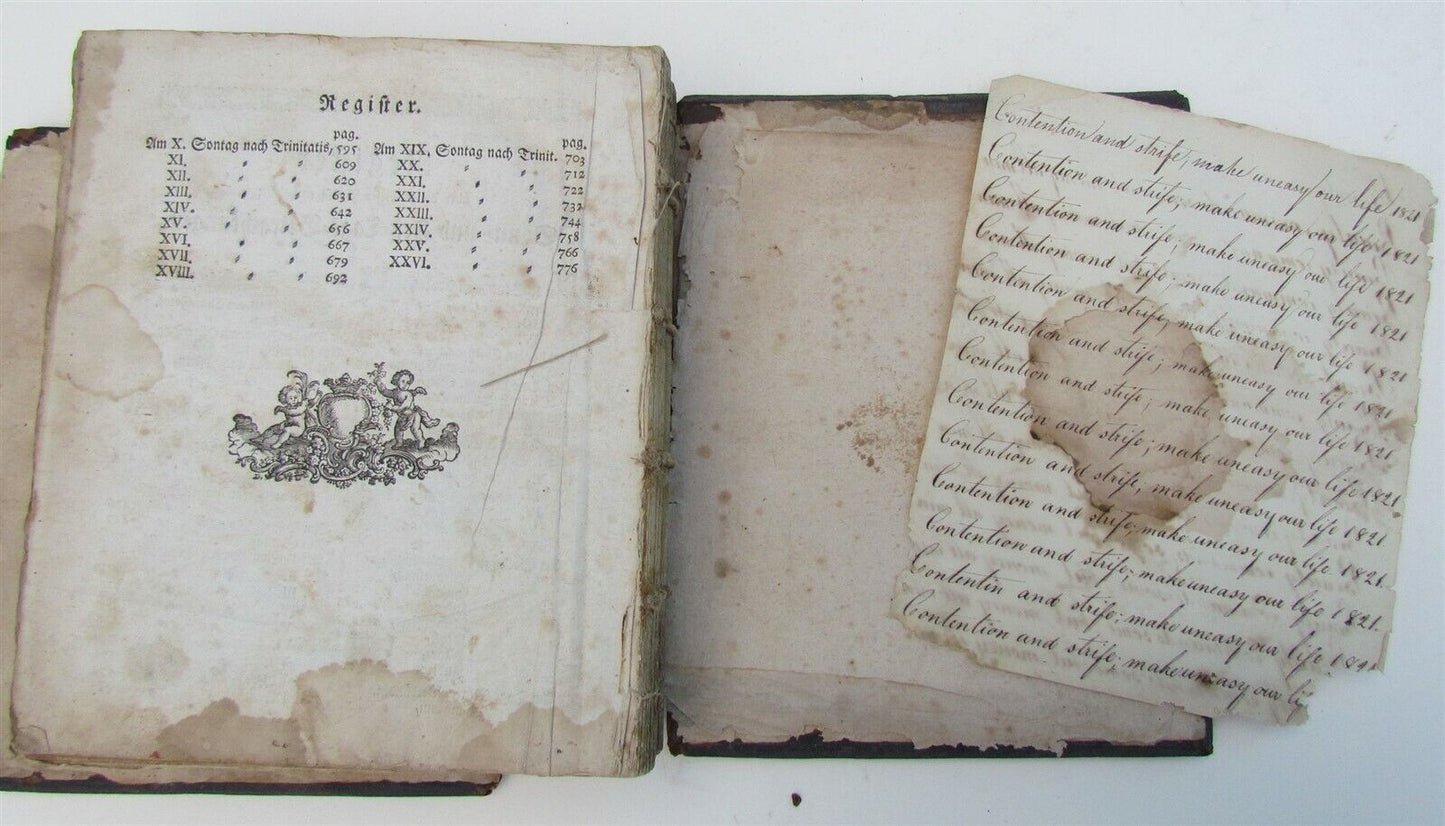 Register.
pag.
Am X. Sontag nach Trinitatis, 595
XI. " " 609
XII. " " 620
XIII. " " 631
XIV. " " 642
XV. " " 656
XVI. " " 667
XVII. " " 679
XVIII. " " 692
pag.
Am XIX. Sontag nach Trinit. 703
XX. " " 712
XXI. " " 722
XXII. " " 732
XXIII. " " 744
XXIV. " " 758
XXV. " " 766
XXVI. " " 776
Contention and strife, make uneasy our life 1821
Contention and strife; make uneasy our life 1821
Contention and strife; make uneasy our life 1821
Contention and strife; make uneasy our life 1821
Contention and strife, make uneasy our life 1821
Contention and strife; make uneasy our life 1821
Contention and strife; make uneasy our life 1821
Contention and strife; make uneasy our life 1821
Contention and strife, make uneasy our life 1821
Contention and strife, make uneasy our life 1821
Contention and strife; make uneasy our life 1821.
Contentin and strife; make uneasy our life 1821
Contention and strife; make uneasy our li